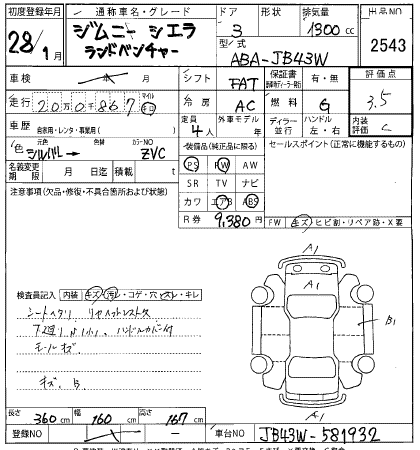 初度登録年月 通称車名・グレード ドア 形状 排気量 出品NO
28年 1月 ジムニー シエラ ランドベンチャー 3 1300cc 2543
型式 ABA-JB43W
車検 年 月 シフト FAT 保証書 有・無 評価点 3.5
走行 20万0千867 冷房 AC 燃料 G
車歴 自家用・レンタ・事業用( ) 定員 4人 外車モデル年 ディーラー 並行 ハンドル 左・右 内装評価 C
色 シルバー→ 色替 カラーNO ZVC 装備品(純正品に限る) セールスポイント(正常に機能するもの)
名義変更期限 月 日迄 積載 t PS PW AW
注意事項(欠品・修復・不具合箇所および状態) SR TV ナビ
カワ エアB ABS
R券 9,380円 FW キズ・ヒビ割・リペア跡・X要
A1
A1
B1
A1
検査員記入 内装 キズ・汚レ・コゲ・穴・スレ・キレ
シートヘタリ
ハンドルカバー付
モールキズ
キズ、B
長さ 360cm 幅 160cm 高さ 167cm
登録NO 車台NO JB43W-581932